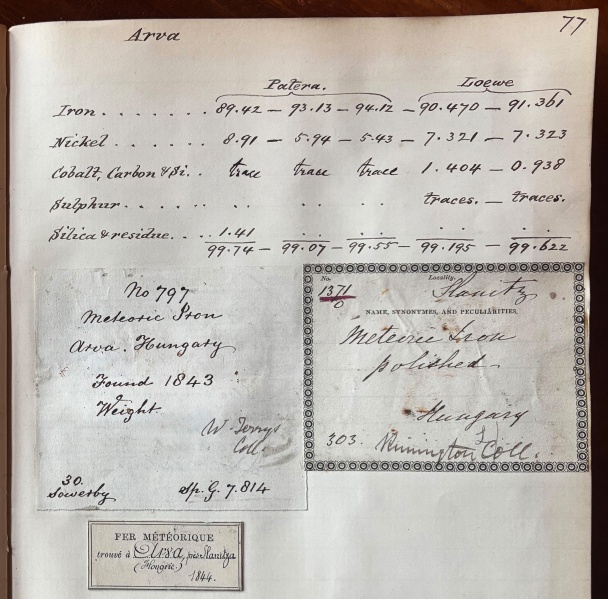 77
Arva
Patera. Loewe
Iron . . . . . . . 89.42 – 93.13 – 94.12 – 90.470 – 91.361
Nickel . . . . . . 8.91 – 5.94 – 5.43 – 7.321 – 7.323
Cobalt, Carbon & Si. . trace trace trace 1.404 – 0.938
Sulphur . . . . . . . . . traces. – traces.
Silica & residue. . . 1.41 . . . . . . . .
99.74 – 99.07 – 99.55 – 99.195 – 99.622
No 797
Meteoric Iron
Arva. Hungary
Found 1843
Weight
Coll.
30.
Sowerby Sp. G. 7.814
No. Locality.
1371 Slanitz
0
NAME, SYNONYMES, AND PECULIARITIES.
Meteoric Iron
polished
Hungary
303. Coll.
FER MÉTÉORIQUE
trouvé à Arva, près Slanitza
(Hongrie)
1844.